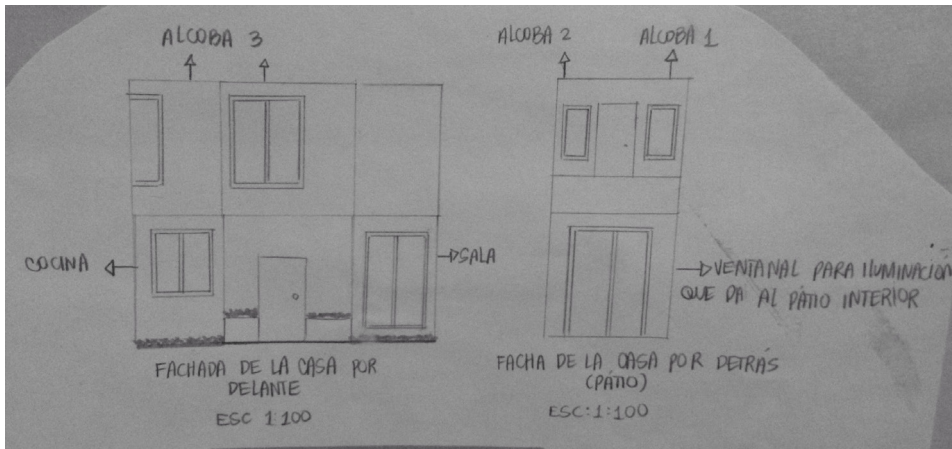 ALCOBA 3
COCINA
SALA
FACHADA DE LA CASA POR
DELANTE
ESC 1:100
ALCOBA 2
ALCOBA 1
VENTANAL PARA ILUMINACION
QUE DA AL PÁTIO INTERIOR
FACHA DE LA CASA POR DETRÁS
(PÁTIO)
ESC:1:100